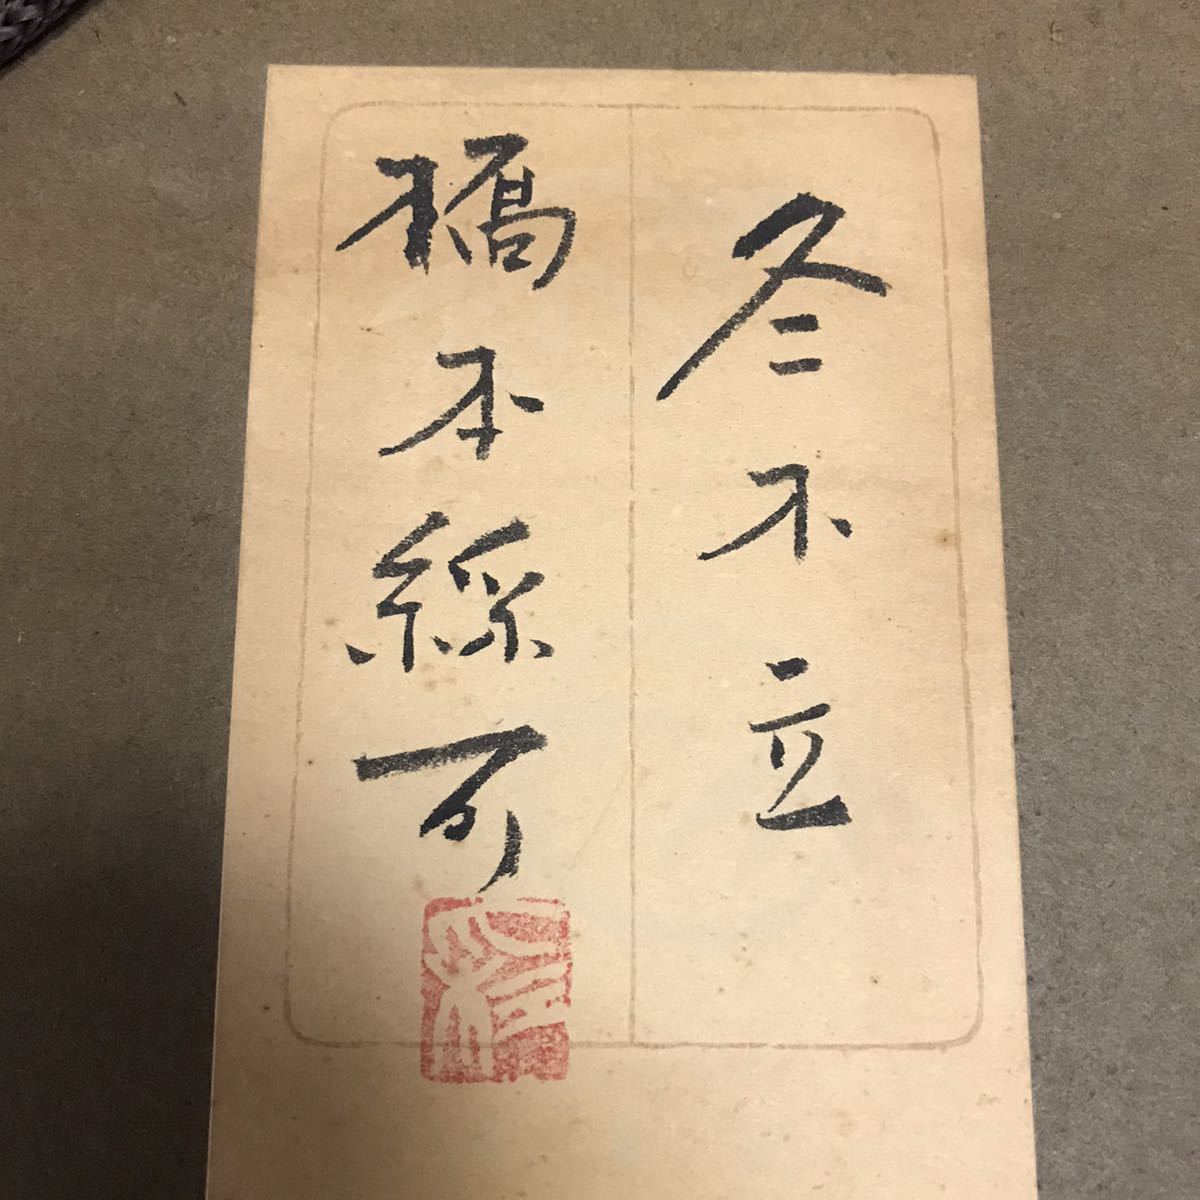 冬木立
橋本綵可